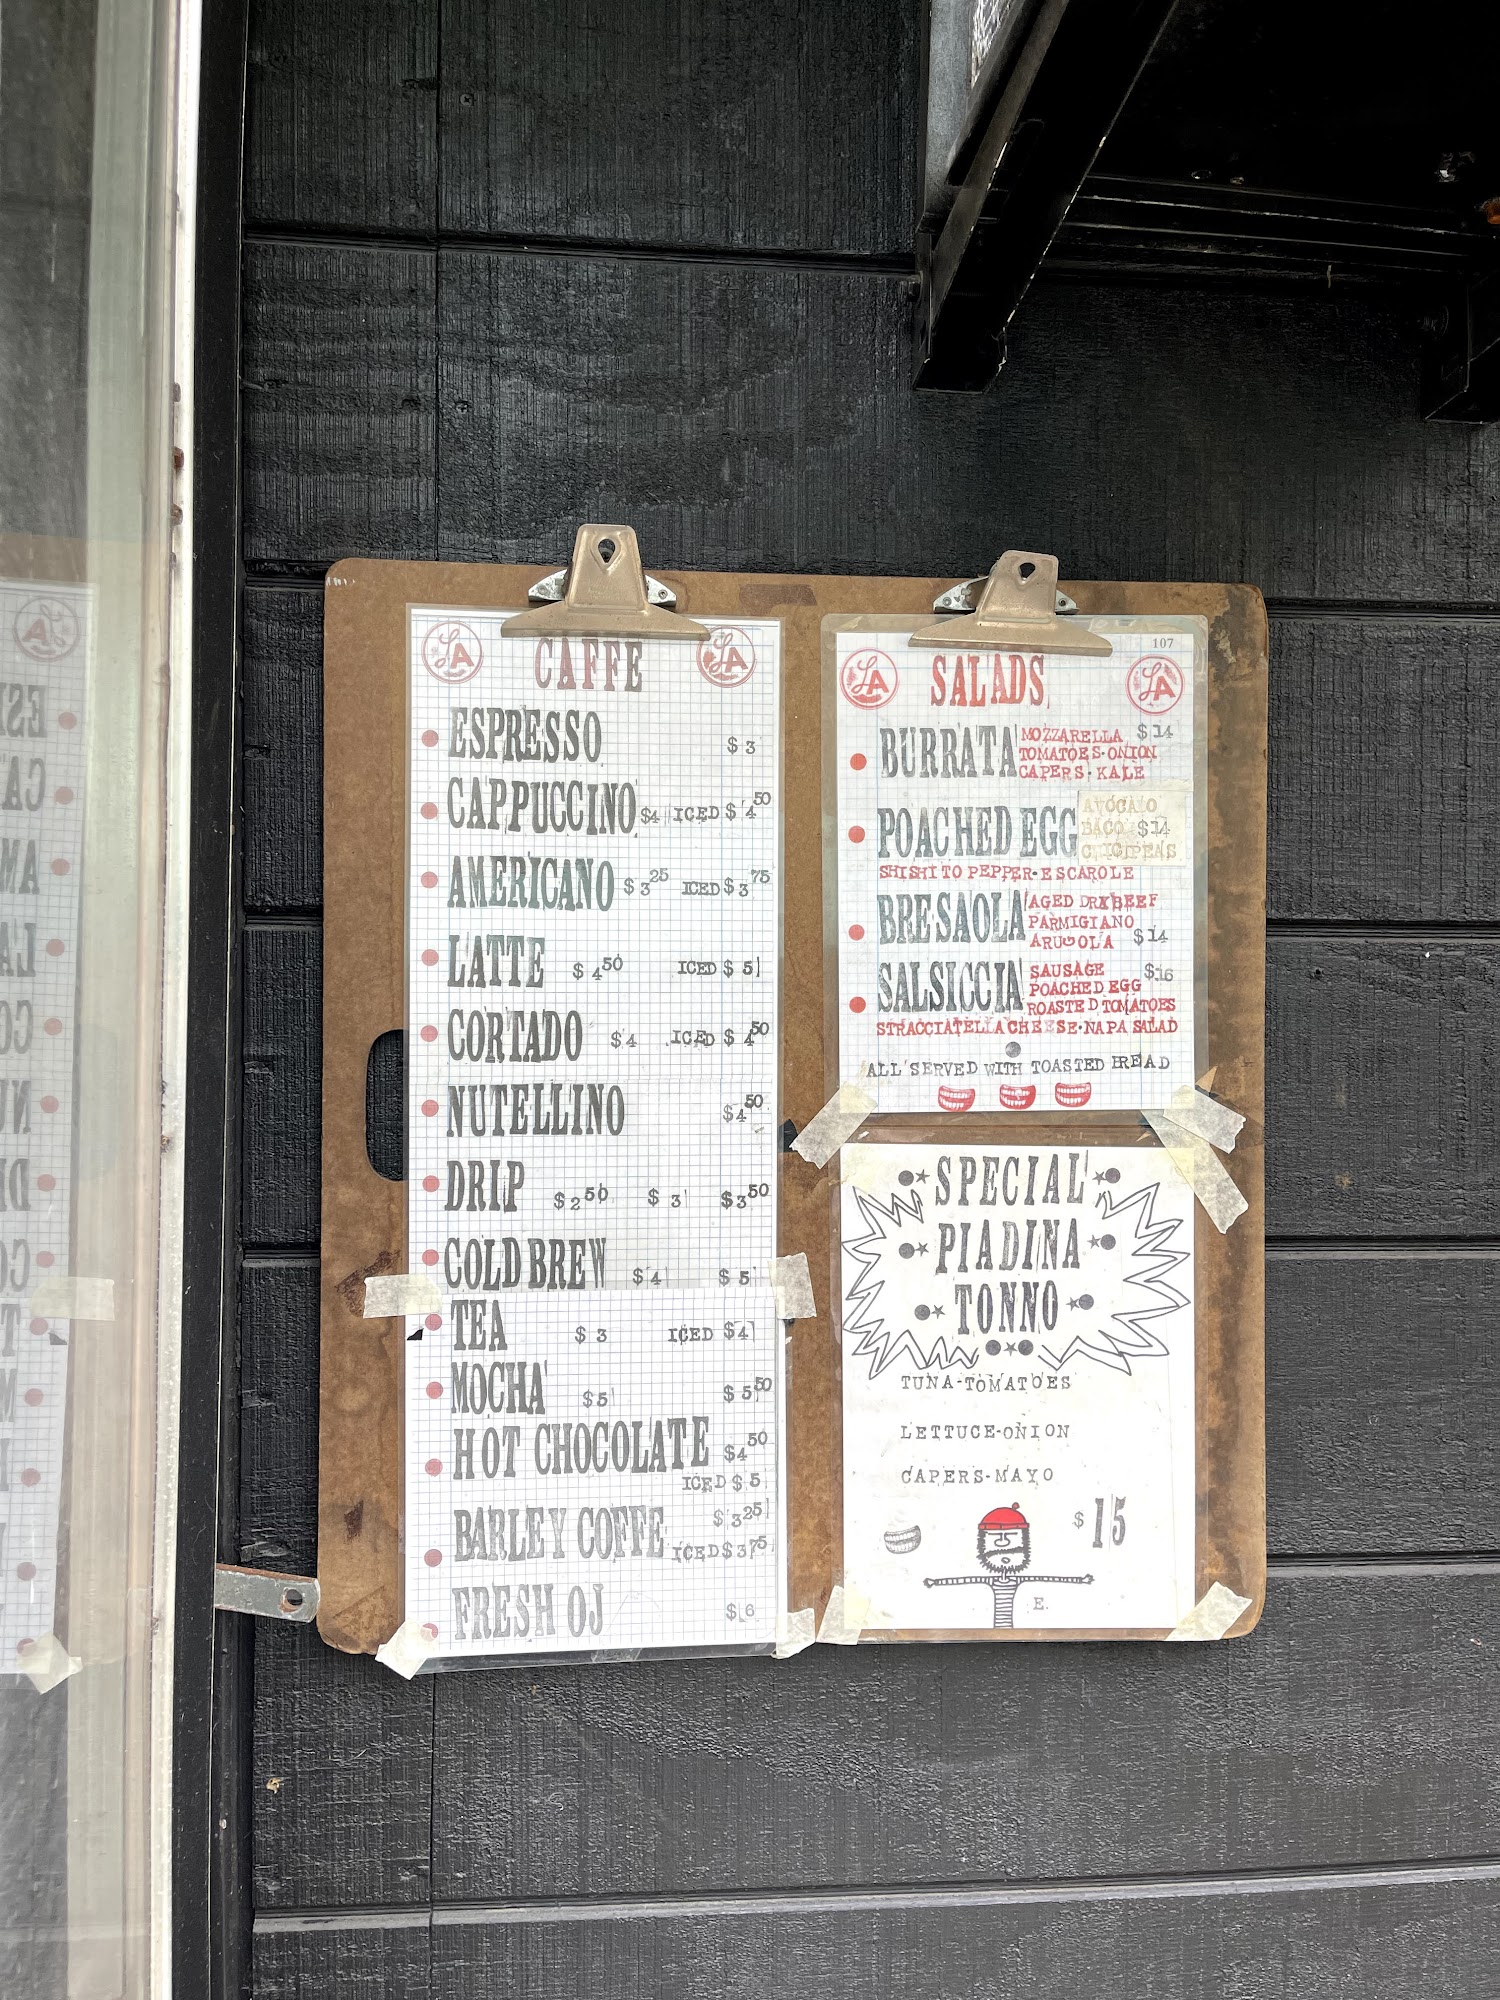 LA CAFFE LA
ESPRESSO $3
CAPPUCCINO $4 ICED $4 50
AMERICANO $3 25 ICED $3 75
LATTE $4 50 ICED $5
CORTADO $4 ICED $4 50
NUTELLINO $4 50
DRIP $2 50 $3 $3 50
COLD BREW $4 $5
TEA $3 ICED $4
MOCHA $5 $5 50
HOT CHOCOLATE $4 50
ICED $5
BARLEY COFFE $3 25
ICED $3 75
FRESH OJ $6
107
LA SALADS LA
BURRATA MOZZARELLA $14
TOMATOES-ONION
CAPERS-KALE
POACHED EGG AVOCADO
BACO $14
CHICPEAS
SHISHITO PEPPER-ESCAROLE
BRESAOLA AGED DRY BEEF
PARMIGIANO
ARUGOLA $14
SALSICCIA SAUSAGE $16
POACHED EGG
ROASTED TOMATOES
STRACCIATELLA CHEESE-NAPA SALAD
ALL SERVED WITH TOASTED BREAD
SPECIAL
PIADINA
TONNO
TUNA-TOMATOES
LETTUCE-ONION
CAPERS-MAYO
$15
E.